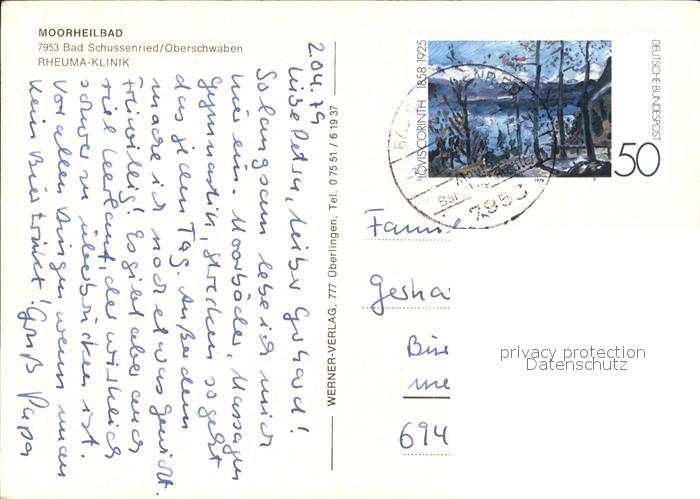 MOORHEILBAD
7953 Bad Schussenried/Oberschwaben
RHEUMA-KLINIK
2.04.79
Liebe Petra, lieber Gerhard!
So langsam lebe ich mich
hier ein. Moorbäder, Massagen
gymnastik, strecken so geht
das jeden Tag. Außerdem
mache ich noch etwas gewicht.
freiwillig! Es gibt aber auch
viel Leerlauf, der wirklich
schwer zu überbrücken ist.
Vor allen Dingen wenn man
kein Bier trinkt! Gruß Papa
WERNER-VERLAG, 777 Überlingen, Tel. 0 75 51 / 6 19 37
LOVIS CORINTH 1858-1925
DEUTSCHE BUNDESPOST
50
1978
7953
Famil
Gerha
694
privacy protection
Datenschutz